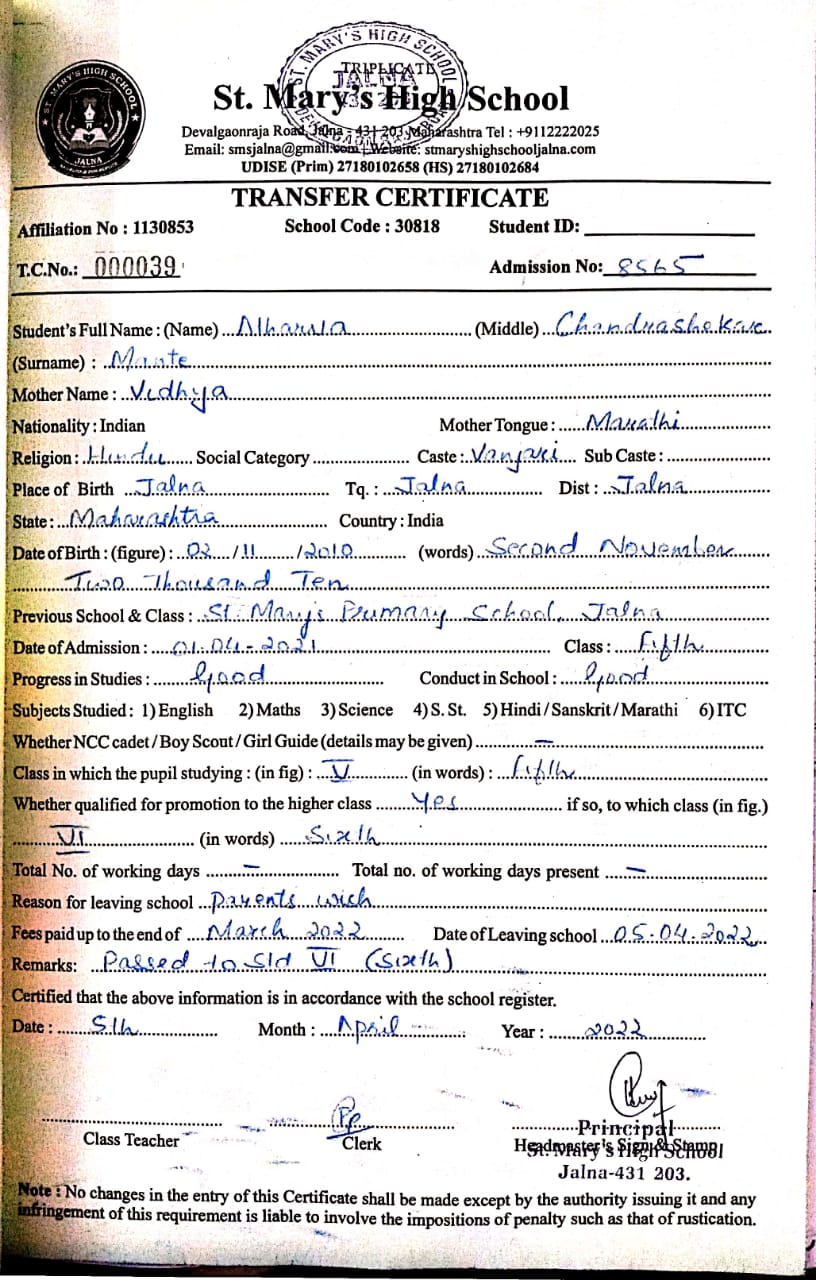 ST. MARY'S HIGH SCHOOL
TRIPLICATE
JALNA
ST MARY'S HIGH SCHOOL
JALNA
St. Mary's High School
Devalgaonraja Road, Jalna - 431 203 Maharashtra Tel : +9112222025
Email: smsjalna@gmail.com | Website: stmaryshighschooljalna.com
UDISE (Prim) 27180102658 (HS) 27180102684
TRANSFER CERTIFICATE
Affiliation No : 1130853 School Code : 30818 Student ID:
T.C.No.: 000039 Admission No: 8565
Student's Full Name : (Name) Atharva (Middle) Chandrashekar
(Surname) : Mante
Mother Name : Vidhya
Nationality : Indian Mother Tongue : Marathi
Religion : Hindu Social Category Caste : Vanjari Sub Caste :
Place of Birth Jalna Tq. : Jalna Dist : Jalna
State : Maharashtra Country : India
Date of Birth : (figure) : 02 / 11 / 2010 (words) Second November
Two Thousand Ten
Previous School & Class : St. Mary's Primary School, Jalna
Date of Admission : 01-04-2021 Class : Fifth
Progress in Studies : Good Conduct in School : Good
Subjects Studied : 1) English 2) Maths 3) Science 4) S. St. 5) Hindi / Sanskrit / Marathi 6) ITC
Whether NCC cadet / Boy Scout / Girl Guide (details may be given) —
Class in which the pupil studying : (in fig) : V (in words) : Fifth
Whether qualified for promotion to the higher class Yes if so, to which class (in fig.)
VI (in words) Sixth
Total No. of working days — Total no. of working days present —
Reason for leaving school Parents wish
Fees paid up to the end of March 2022 Date of Leaving school 05-04-2022
Remarks: Passed to Std VI (Sixth)
Certified that the above information is in accordance with the school register.
Date : 5th Month : April Year : 2022
Principal
Class Teacher Clerk Headmaster's Sign & Stamp
St. Mary's High School
Jalna-431 203.
Note : No changes in the entry of this Certificate shall be made except by the authority issuing it and any
infringement of this requirement is liable to involve the impositions of penalty such as that of rustication.